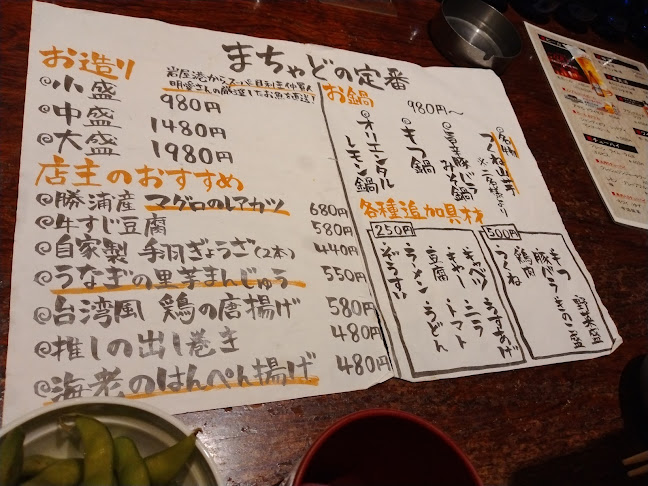 まちゃどの定番
お造り
岩屋港からスーパー目利き仲買人
明愛さんの厳選したお魚を直送!
@小盛 980円
@中盛 1480円
@大盛 1980円
店主のおすすめ
@勝浦産 マグロのレアカツ 680円
@牛すじ豆腐 580円
@自家製 手羽ぎょうざ(2本) 440円
@うなぎの里芋まんじゅう 550円
@台湾風 鶏の唐揚げ 580円
@推しの出し巻き 480円
@海老のはんぺん揚げ 480円
お鍋
980円～
つくね山芋
@旨辛豚バラみそ鍋
@もつ鍋
@オリエンタルレモン鍋
各種追加具材
250円
・キャベツ・ニラ・うすあげ
・きゃー・トマト
・豆腐・うどん
・ラーメン
・ぞうすい
500円
もつ 野菜盛
豚バラ きのこ盛
鶏肉
つくね